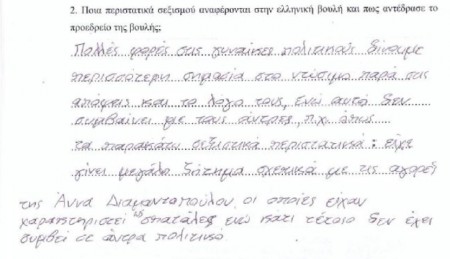 2. Ποια περιστατικά σεξισμού αναφέρονται στην ελληνική βουλή και πως αντέδρασε το
προεδρείο της βουλής;
Πολλές φορές στις γυναίκες πολιτικούς δίνουμε
περισσότερη σημασία στο ντύσιμο παρά στις
απόψεις και το λόγο τους, ενώ αυτό δεν
συμβαίνει με τους άντρες, π.χ. όπως
τα παρακάτω σεξιστικά περιστατικά: είχε
γίνει μεγάλο ζήτημα σχετικά με τις αγορές
της Άννα Διαμαντοπούλου οι οποίες είχαν
χαρακτηριστεί ως σπατάλες ενώ κάτι τέτοιο δεν έχει
συμβεί σε άντρα πολιτικό